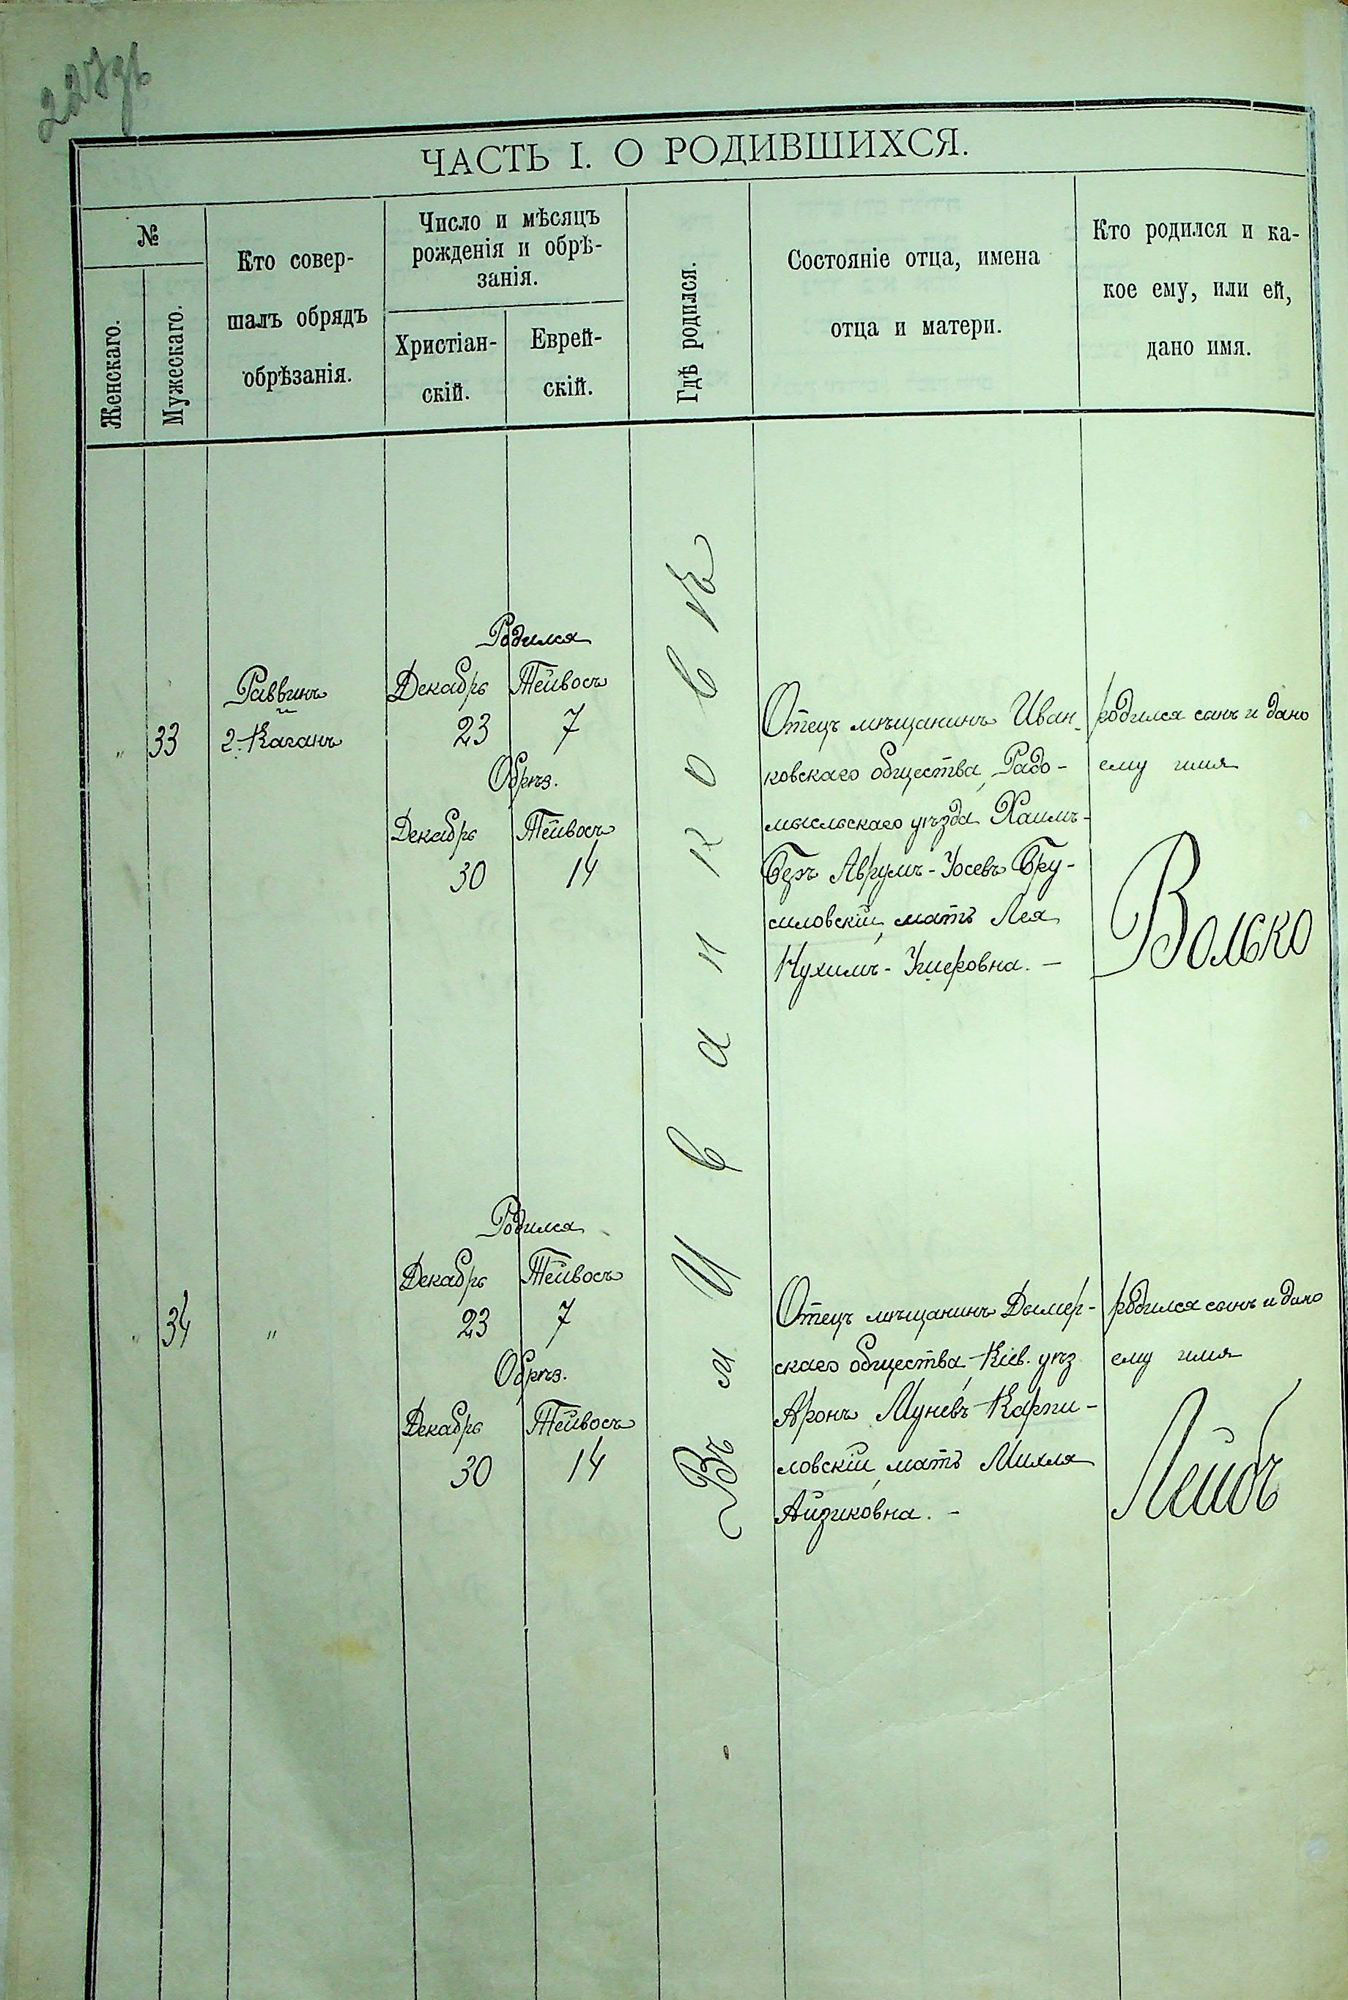 227
ЧАСТЬ I. О РОДИВШИХСЯ.
№
Женскаго.
Мужескаго.
Кто совер-
шалъ обрядъ
обрѣзанія.
Число и мѣсяцъ
рожденія и обрѣ-
занія.
Христіан-
скій.
Еврей-
скій.
Гдѣ родился.
Состояніе отца, имена
отца и матери.
Кто родился и ка-
кое ему, или ей,
дано имя.
Въ м. Иванковѣ
„ 33
Раввинъ
г. Каганъ
Родился
Декабрь Тейвосъ
23 7
Обрѣз.
Декабрь Тейвосъ
30 14
Отецъ мѣщанинъ Иван-
ковскаго общества, Радо-
мысльскаго уѣзда Хаимъ-
Беръ Аврумъ-Іосевъ Бру-
силовскій, мать Лея
Нухимъ-Ушеровна. —
родился сынъ и дано
ему имя
Волько
„ 34
„
Родился
Декабрь Тейвосъ
23 7
Обрѣз.
Декабрь Тейвосъ
30 14
Отецъ мѣщанинъ Дымер-
скаго общества, Кіев. уѣз
Аронъ Муневъ Карпи-
ловскій, мать Михля
Айзиковна. —
родился сынъ и дано
ему имя
Лейбъ